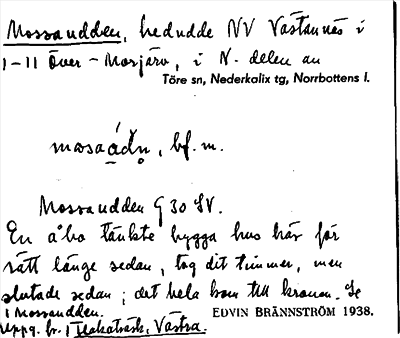 Mossaudden, hedudde NV Västannäs i
1-11 Över-Morjärv, i N. delen av
Töre sn, Nederkalix tg, Norrbottens l.
bf. m.
Mossaudden G 30 SV.
En åbo tänkte bygga hus här för
rätt länge sedan, tog dit timmer, men
slutade sedan; det hela kom till kronan. Se
1 Mossaudden.
EDVIN BRÄNNSTRÖM 1938.
Uppg. br. 1 Västra.